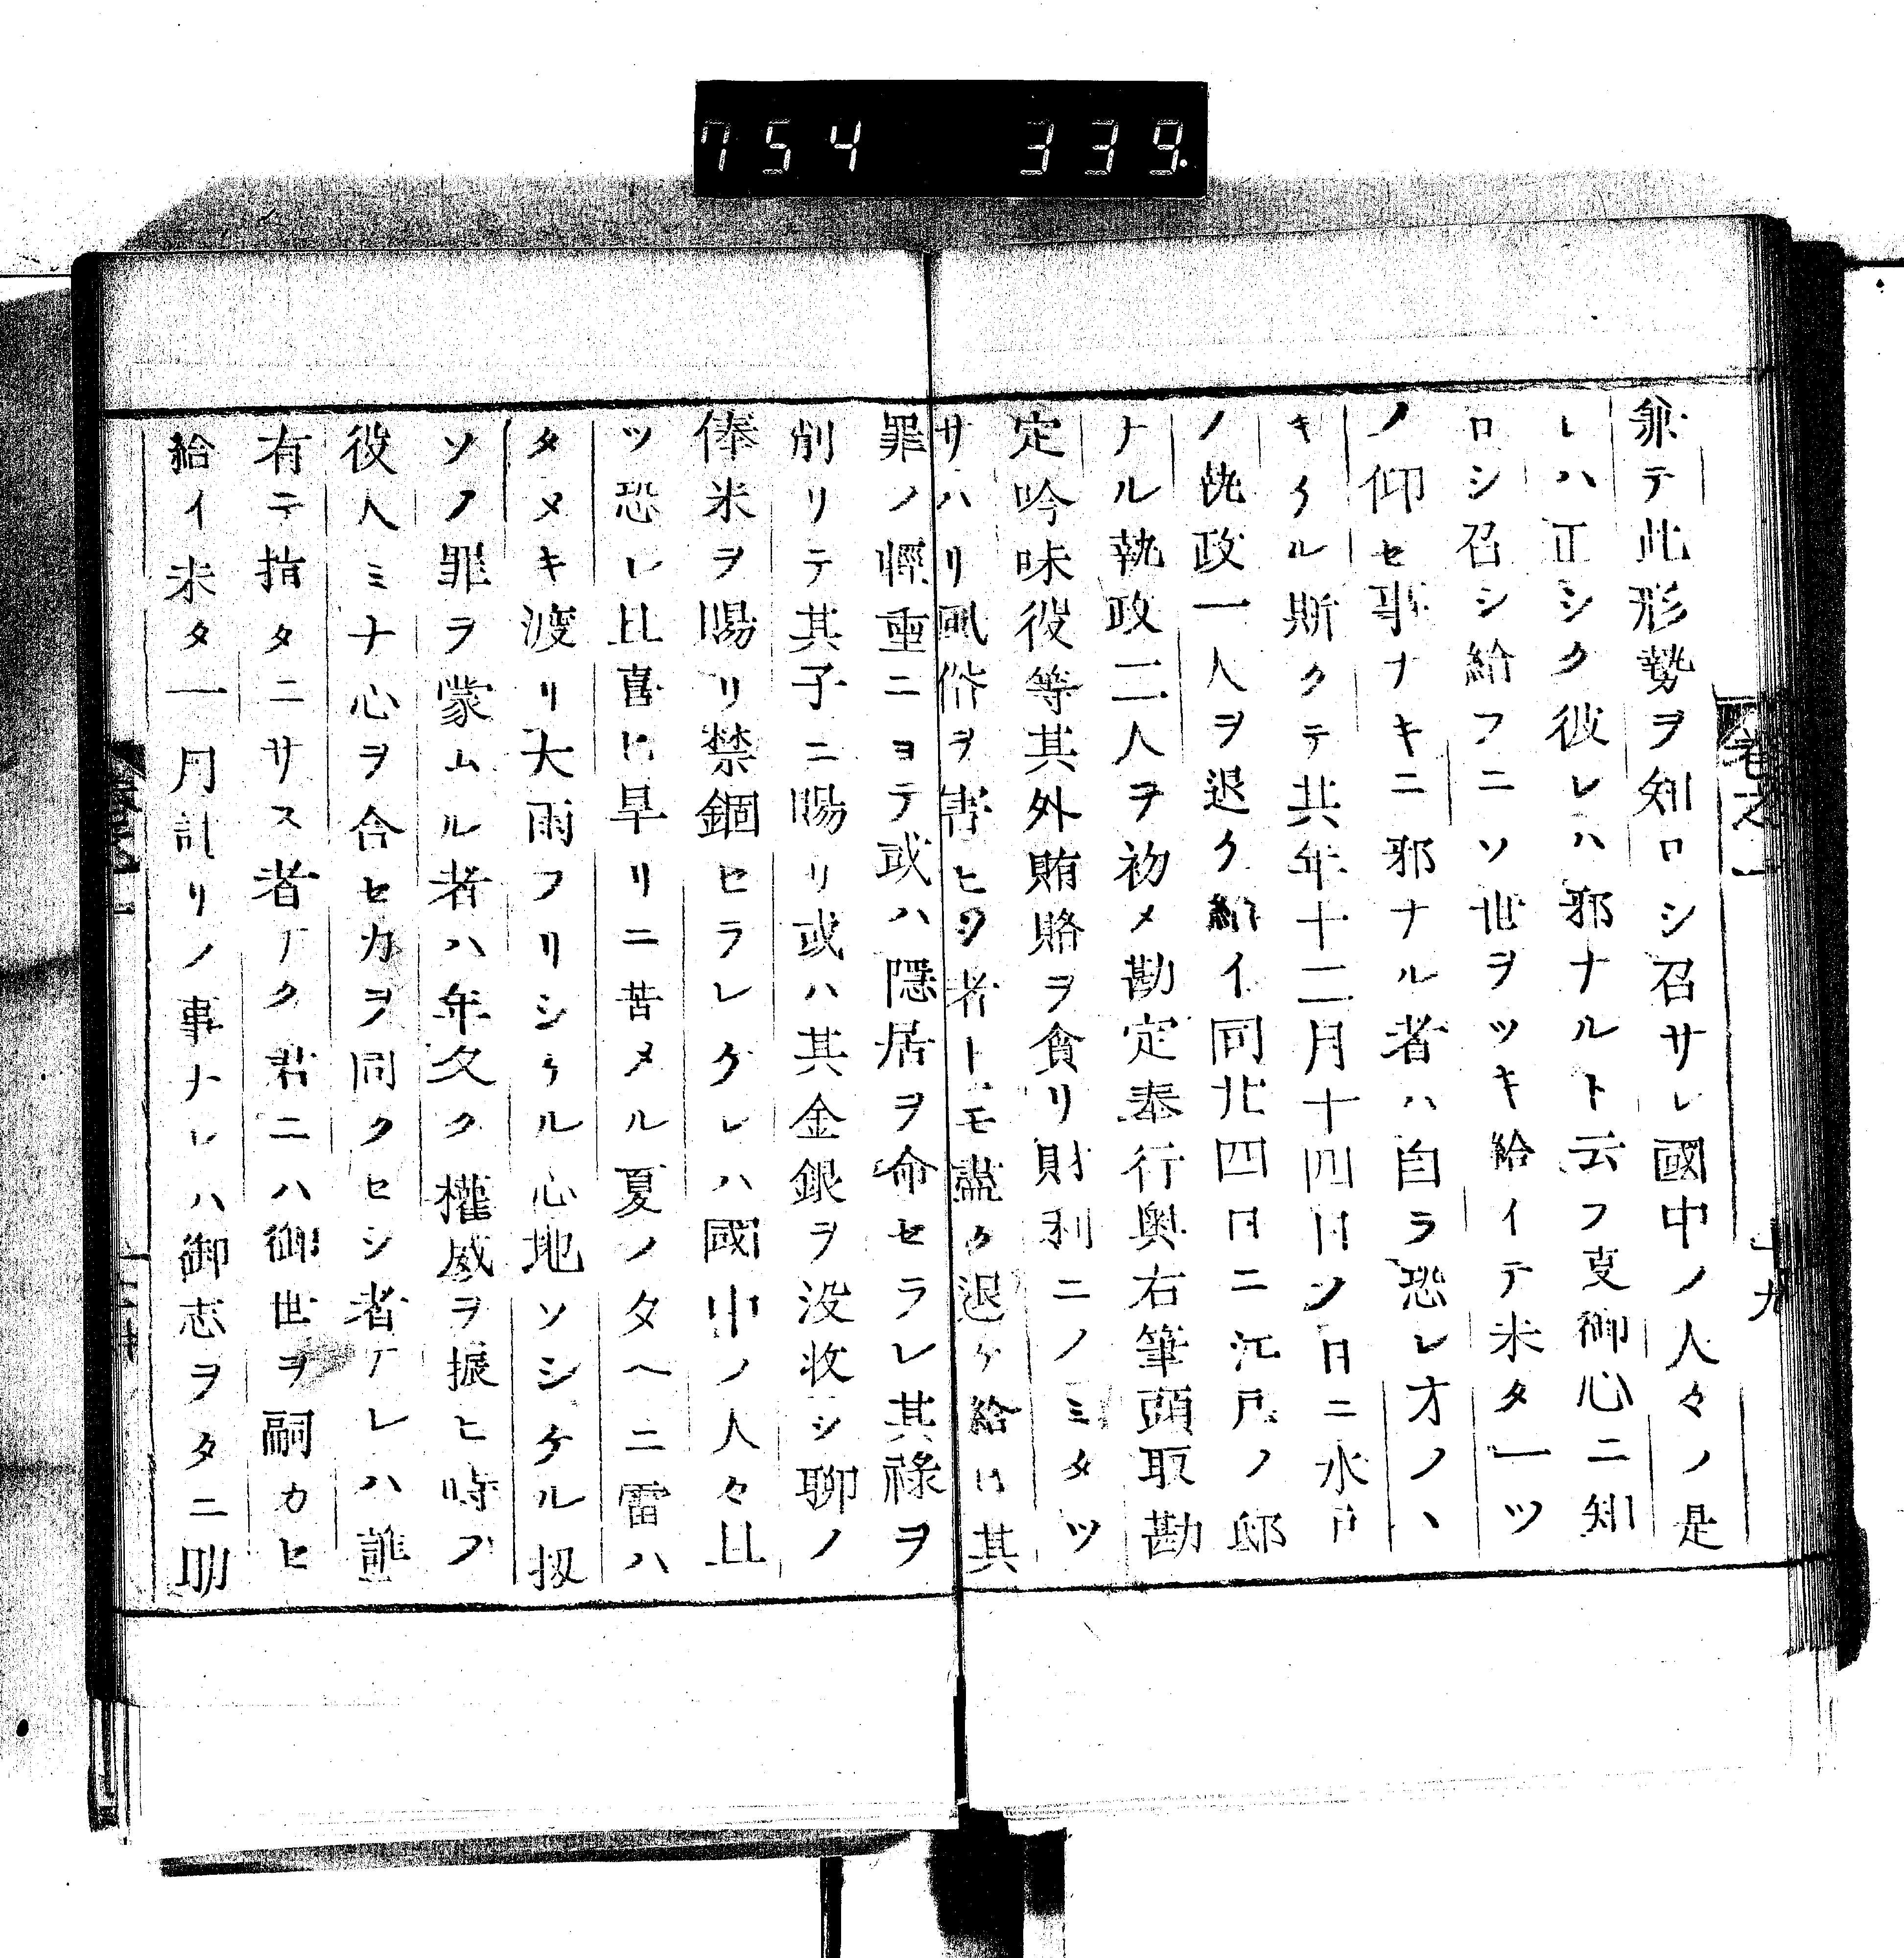 754 339
卷之一
十九
兼テ此形勢ヲ知ロシ召サレ國中ノ人々ノ是
レハ正シク彼レハ邪ナルト云フ叓御心ニ知
ロシ召シ給フニソ世ヲツキ給イテ未タ一ツ
ノ仰セ事ナキニ邪ナル者ハ自ラ恐レオノヽ
キケル斯クテ其年十二月十四日ノ日ニ水戸
ノ執政一人ヲ退ク給イ同廿四日ニ江戸ノ邸
ナル執政二人ヲ初メ勘定奉行奥右筆頭取勘
定吟味役等其外賄賂ヲ貪リ財利ニノミタツ
サハリ風俗ヲ害ヒシ者トモ盡ク退ケ給ヒ其
罪ノ輕重ニヨテ或ハ隱居ヲ命セラレ其祿ヲ
削リテ其子ニ賜リ或ハ其金銀ヲ没收シ聊ノ
俸米ヲ賜リ禁錮セラレケレハ國中ノ人々且
ツ恐レ且喜ヒ旱リニ苦メル夏ノタヘニ雷ハ
タメキ渡リ大雨フリシケル心地ソシケル扨
ソノ罪ヲ蒙ムル者ハ年久ク權威ヲ振ヒ時ノ
役人ミナ心ヲ合セ力ヲ同クセシ者ナレハ誰
有テ指タニサス者ナク君ニハ御世ヲ嗣カヒ
給イ未タ一月計リノ事ナレハ御志ヲタニ明